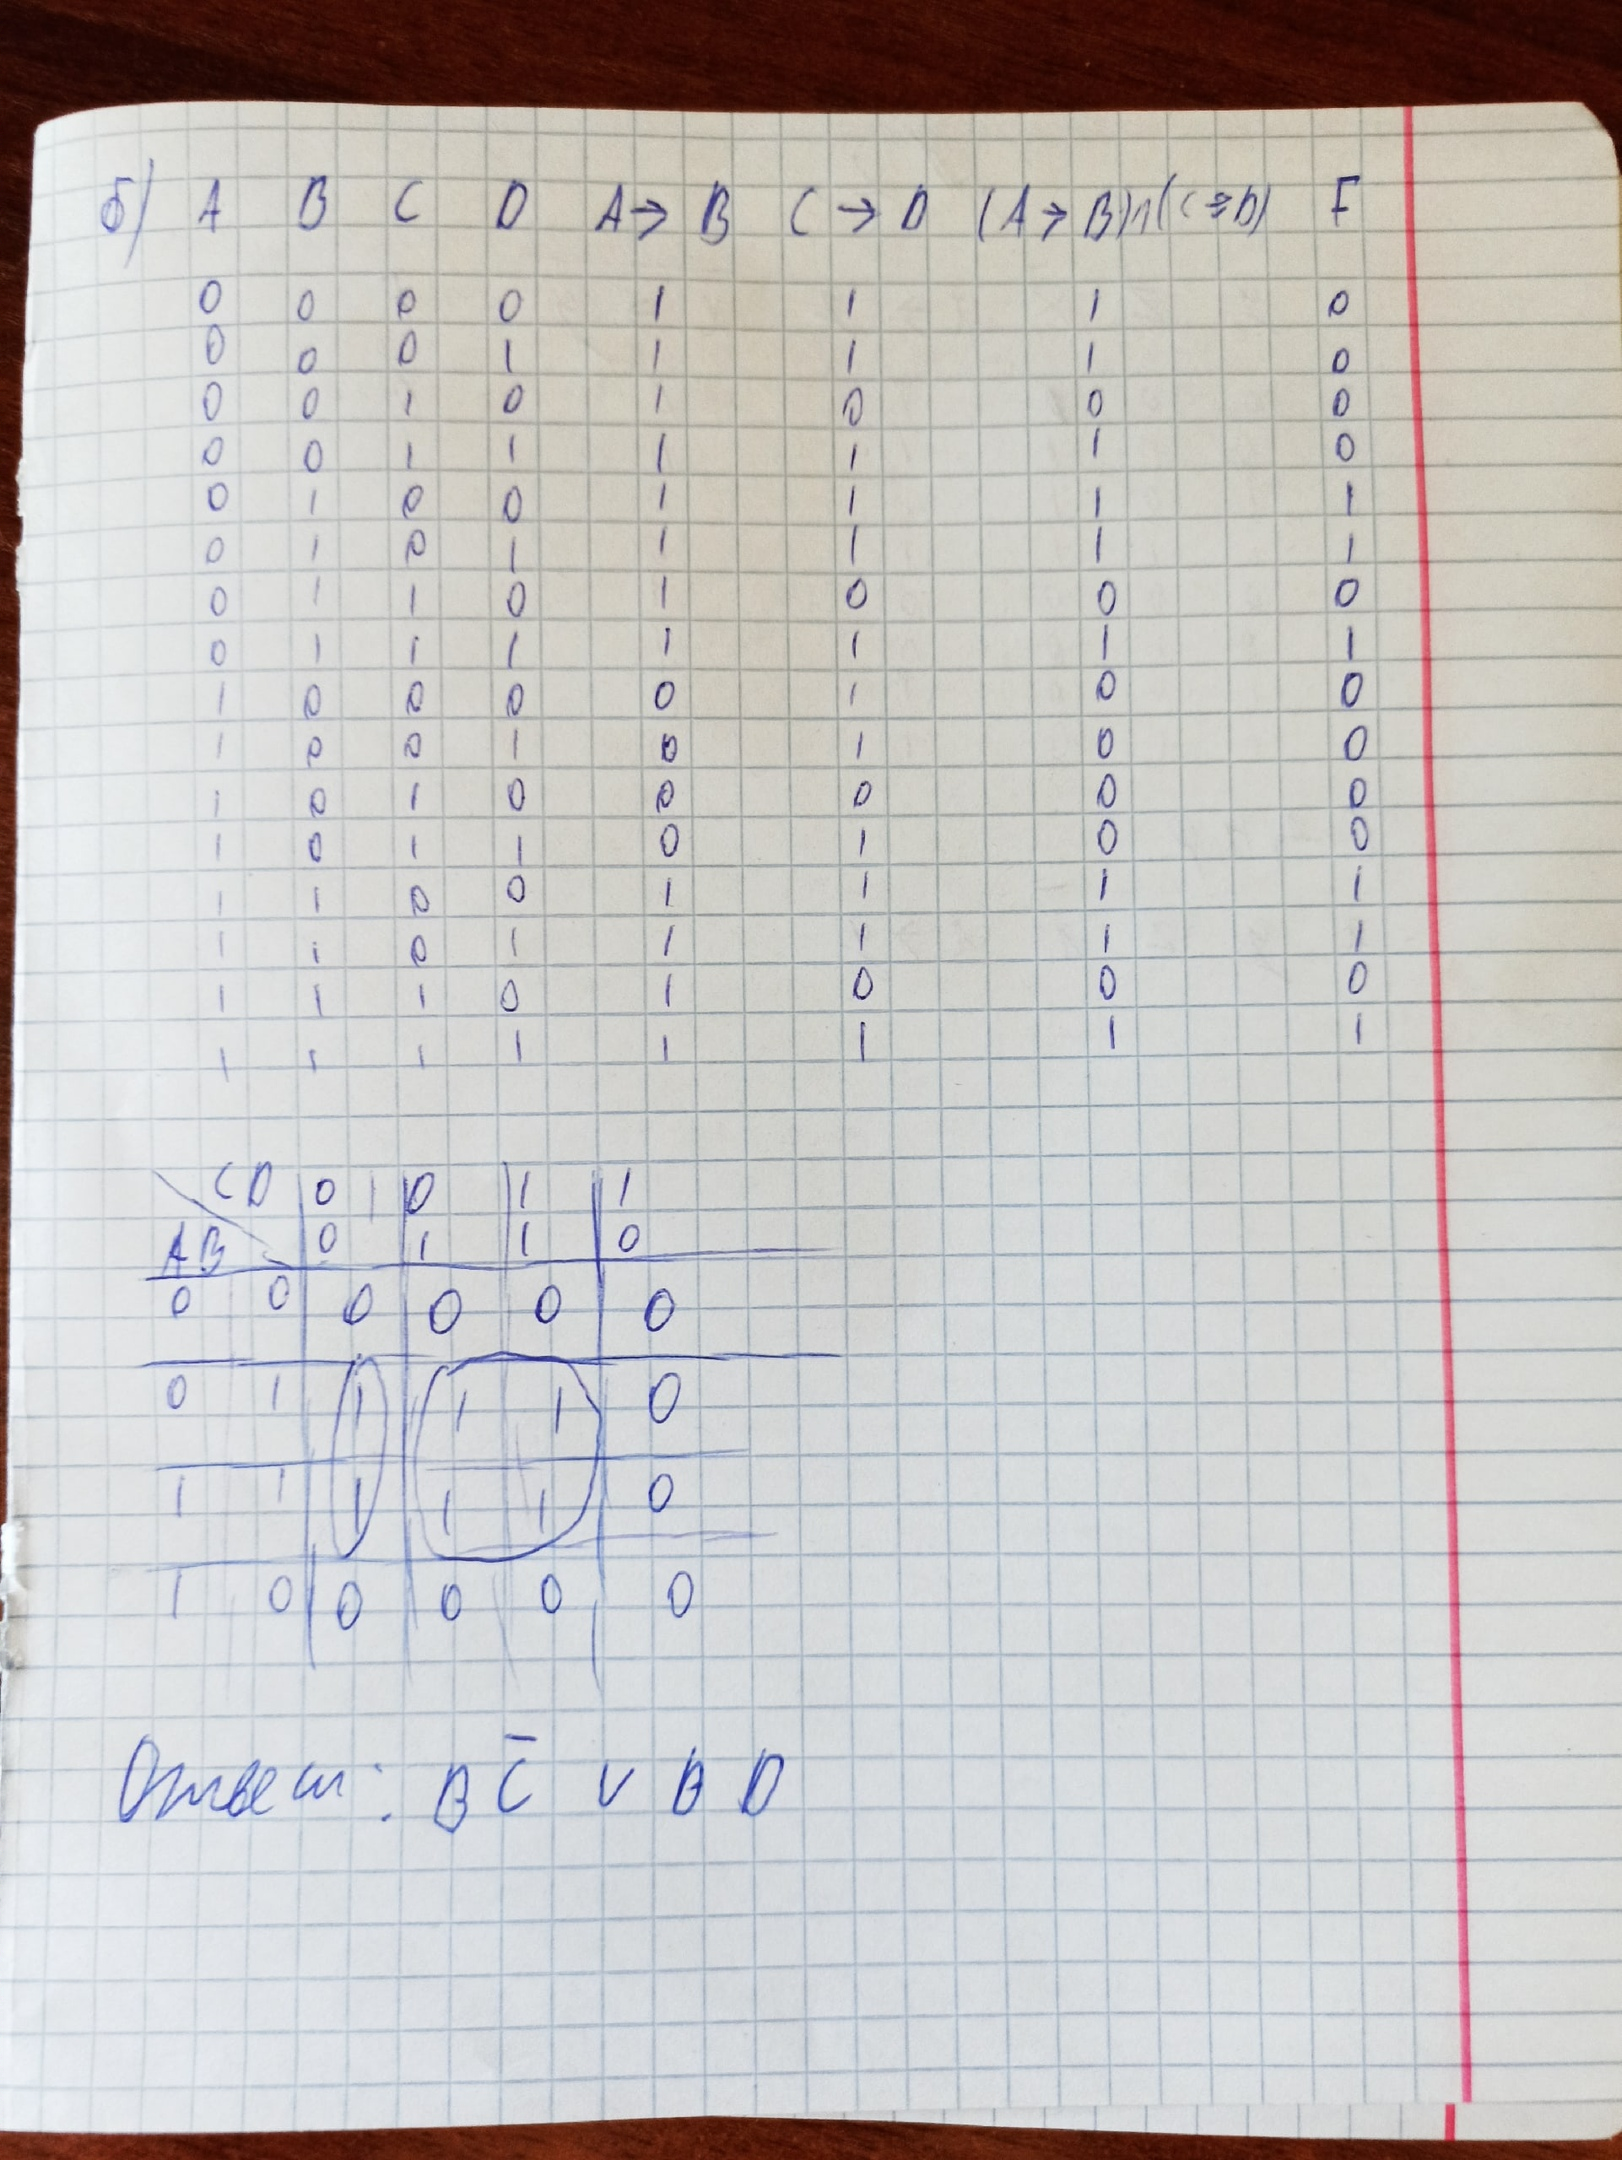 б) A B C D A → B C → D (A → B) ∧ (C → D) F
0 0 0 0 1 1 1 0
0 0 0 1 1 1 1 0
0 0 1 0 1 0 0 0
0 0 1 1 1 1 1 0
0 1 0 0 1 1 1 1
0 1 0 1 1 1 1 1
0 1 1 0 1 0 0 0
0 1 1 1 1 1 1 1
1 0 0 0 0 1 0 0
1 0 0 1 0 1 0 0
1 0 1 0 0 0 0 0
1 0 1 1 0 1 0 0
1 1 0 0 1 1 1 1
1 1 0 1 1 1 1 1
1 1 1 0 1 0 0 0
1 1 1 1 1 1 1 1
CD 0 0 1 1
AB 0 1 1 0
0 0 0 0 0 0
0 1 1 1 1 0
1 1 1 1 1 0
1 0 0 0 0 0
Ответ: B C̅ ∨ B D